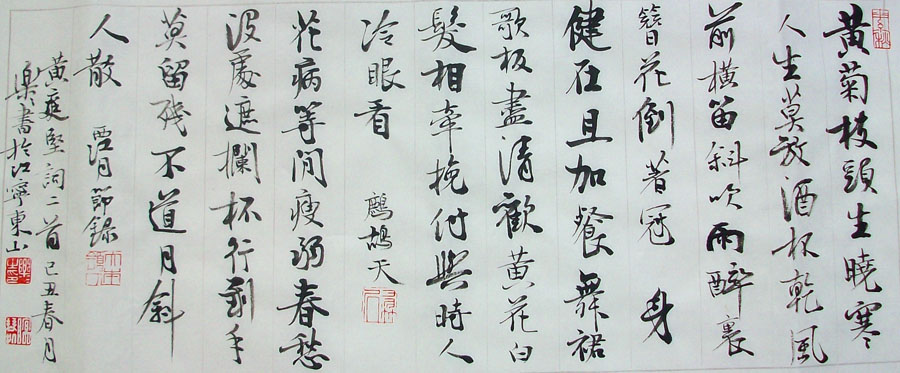 黄菊枝頭生曉寒
人生莫放酒杯乾風
前橫笛斜吹雨醉裏
簪花倒著冠 身
健在且加餐舞裙
歌板盡清歡黄花白
髮相牽挽付與時人
冷眼看 鷓鴣天
花病等閒瘦弱春愁
沒處遮攔杯行到手
莫留殘不道月斜
人散 西江月節錄
黄庭堅詞二首 己丑春月
樂書於江寧東山